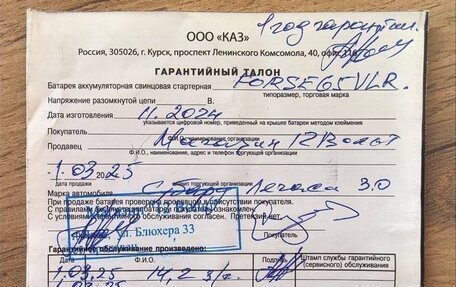 ООО «КАЗ»
1 год гарантии
Россия, 305026, г. Курск, проспект Ленинского Комсомола, 40, офис
ГАРАНТИЙНЫЙ ТАЛОН
Батарея аккумуляторная свинцовая стартерная FORSE 65 VLR.
типоразмер, торговая марка
Напряжение разомкнутой цепи В.
Дата изготовления 11.2024
указывается цифровой номер, приведенный на крышке батареи методом клеймения
Покупатель
Ф.И.О., наименование организации
Продавец Магазин 12 Вольт
Ф.И.О., наименование, адрес и телефон торгующей организации
1.03.25
дата продажи
штамп торгующей организации
Марка автомобиля Субару Легаси 3.0
При продаже батарея проверена продавцом в присутствии покупателя.
С правилами эксплуатации батареи покупатель ознакомлен.
С условиями гарантийного обслуживания согласен. Претензий нет.
л. Блюхера 33
Покупатель
Гарантийное обслуживание произведено:
Дата Ф.И.О. Подпись Штамп службы гарантийного (сервисного) обслуживания
1.03.25 14,2 з/г